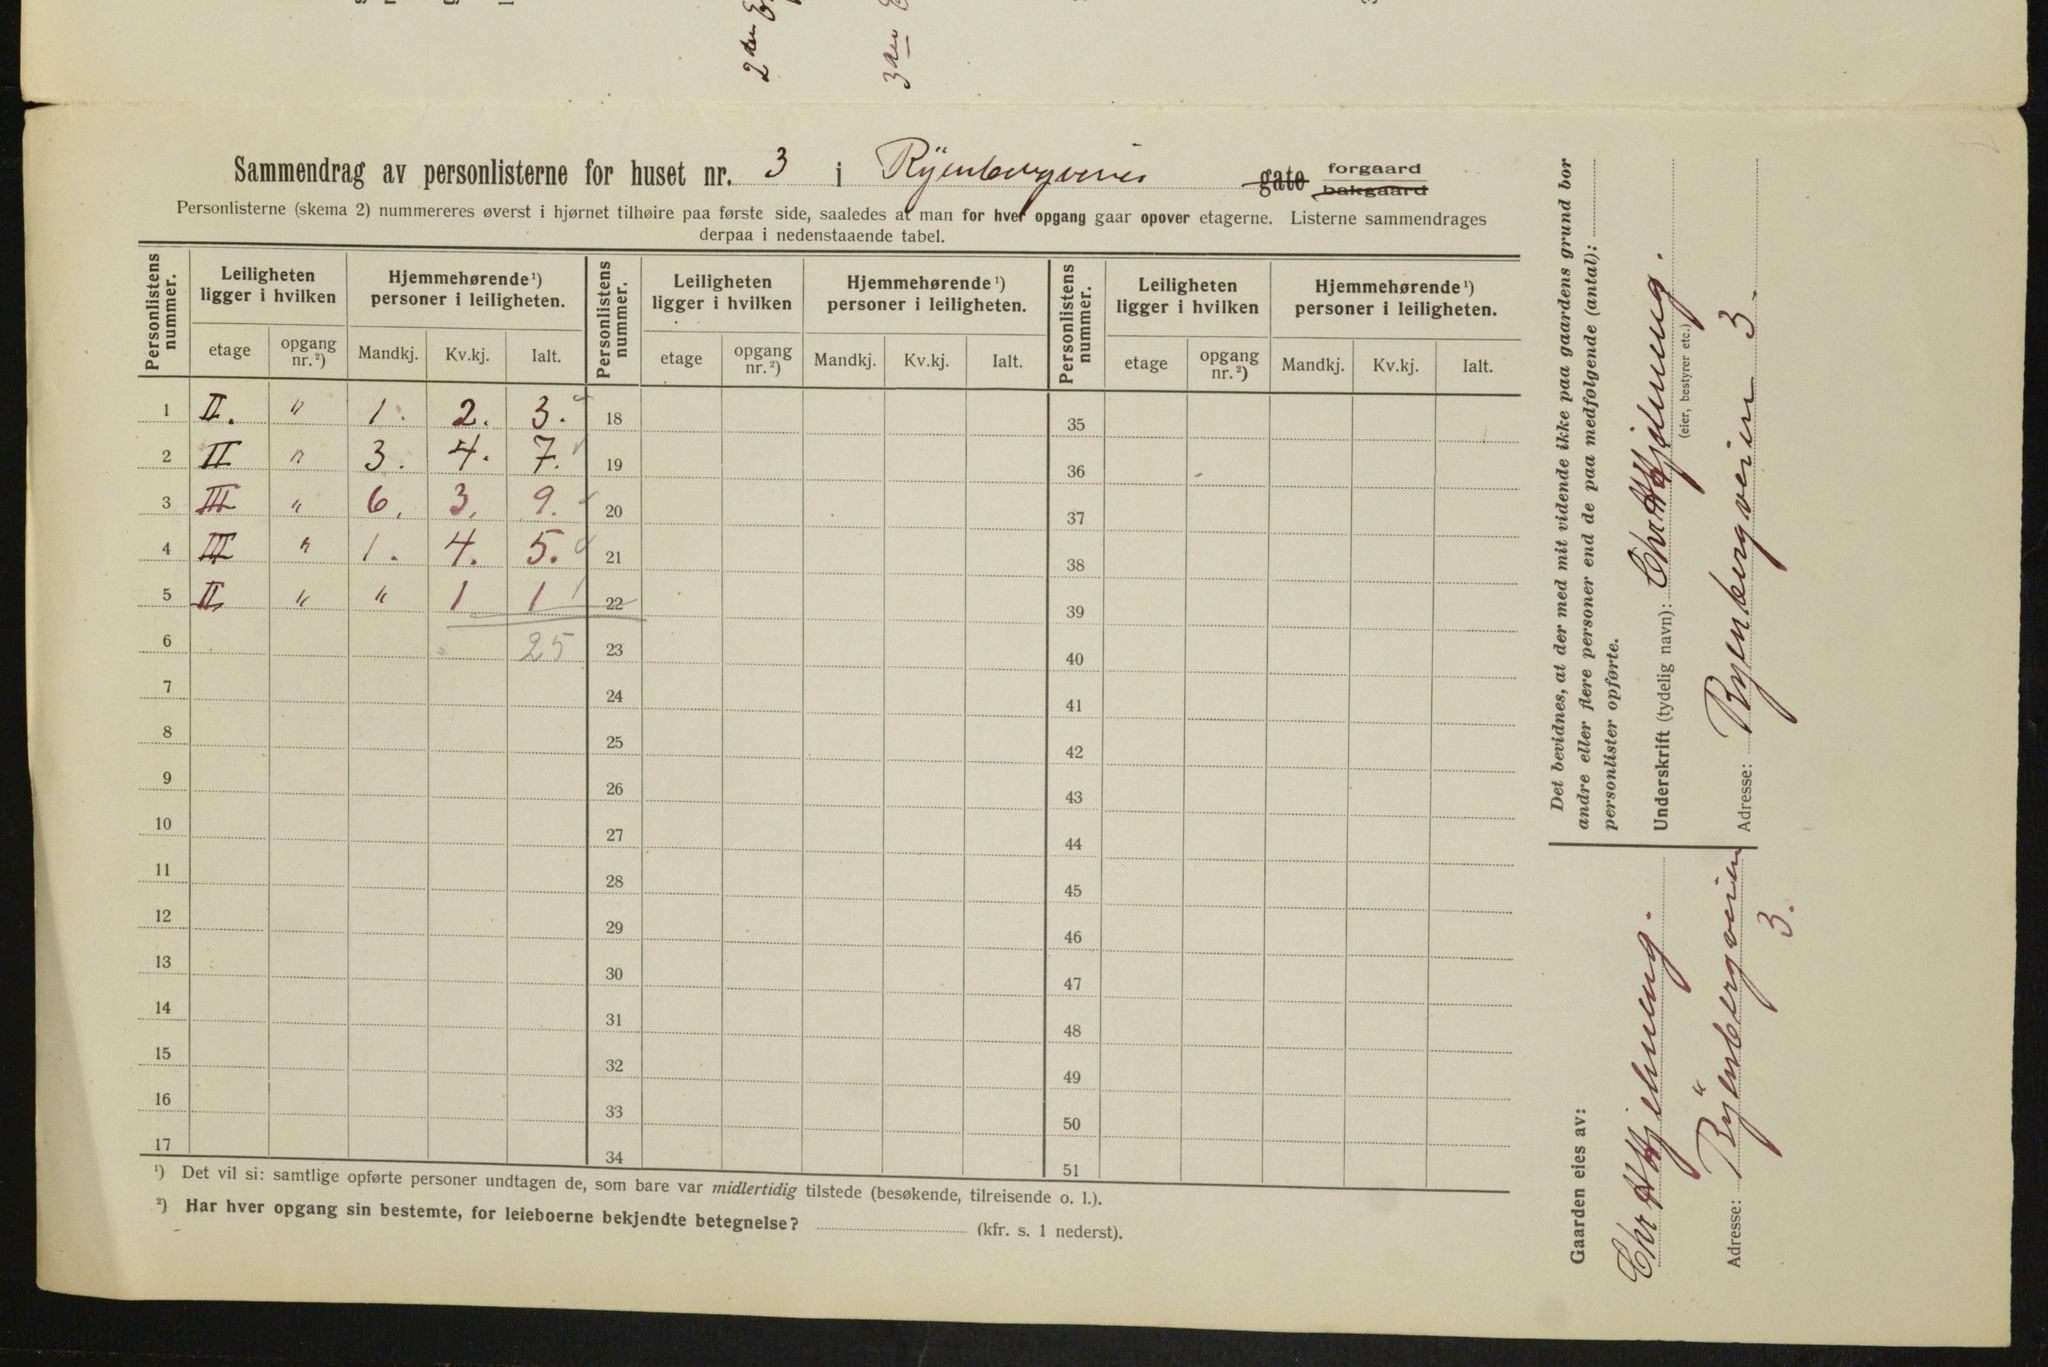 2den
3den
Sammendrag av personlisterne for huset nr. 3 i Rÿenbergveien gate forgaard bakgaard
Personlisterne (skema 2) nummereres øverst i hjørnet tilhøire paa første side, saaledes at man for hver opgang gaar opover etagerne. Listerne sammendrages
derpaa i nedenstaaende tabel.
Personlistens nummer. Leiligheten ligger i hvilken Hjemmehørende¹) personer i leiligheten. Personlistens nummer. Leiligheten ligger i hvilken Hjemmehørende¹) personer i leiligheten. Personlistens nummer. Leiligheten ligger i hvilken Hjemmehørende¹) personer i leiligheten.
etage opgang nr.²) Mandkj. Kv.kj. Ialt. etage opgang nr.²) Mandkj. Kv.kj. Ialt. etage opgang nr.²) Mandkj. Kv.kj. Ialt.
1 II. " 1. 2. 3. 18 35
2 II " 3. 4. 7. 19 36
3 III " 6. 3. 9. 20 37
4 III " 1. 4. 5. 21 38
5 II " " 1 1 22 39
6 25 23 40
7 24 41
8 25 42
9 26 43
10 27 44
11 28 45
12 29 46
13 30 47
14 31 48
15 32 49
16 33 50
17 34 51
¹) Det vil si: samtlige opførte personer undtagen de, som bare var midlertidig tilstede (besøkende, tilreisende o. l.).
²) Har hver opgang sin bestemte, for leieboerne bekjendte betegnelse? (kfr. s. 1 nederst).
Det bevidnes, at der med mit vidende ikke paa gaardens grund bor
andre eller flere personer end de paa medfølgende (antal):
personlister opførte.
Underskrift (tydelig navn): Chr Hjelmung.
(eier, bestyrer etc.)
Adresse: Ryenbergveien 3.
Gaarden eies av:
Chr Hjelmung.
Adresse: Rÿenbergveien
3.